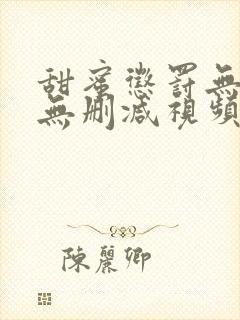 甜蜜懲罰無
無刪減視頻
陳麗卿